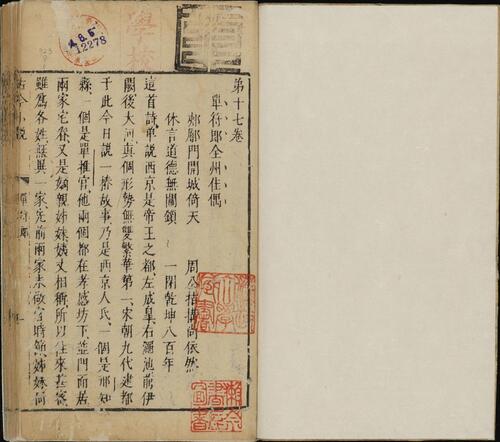 第十七卷
單符郎全州佳偶
郟鄏門開城倚天　周公拮搆尚依然
休言道德無關鎖　一閉乾坤八百年
這首詩單說西京是帝王之都左成皐右澠池前伊
闕後大河真個形勢無雙繁華第一宋朝九代建都
于此今日說一樁故事乃是西京人氏一個是邢知
縣一個是單推官他兩個都在孝感坊下並門而居
兩家宅眷又是嫡親姊妹姨丈相稱所以往來甚密
雖為各姓無異一家先前兩家未做官時節姊妹同
古今小說
單符郎
一
學校
12278